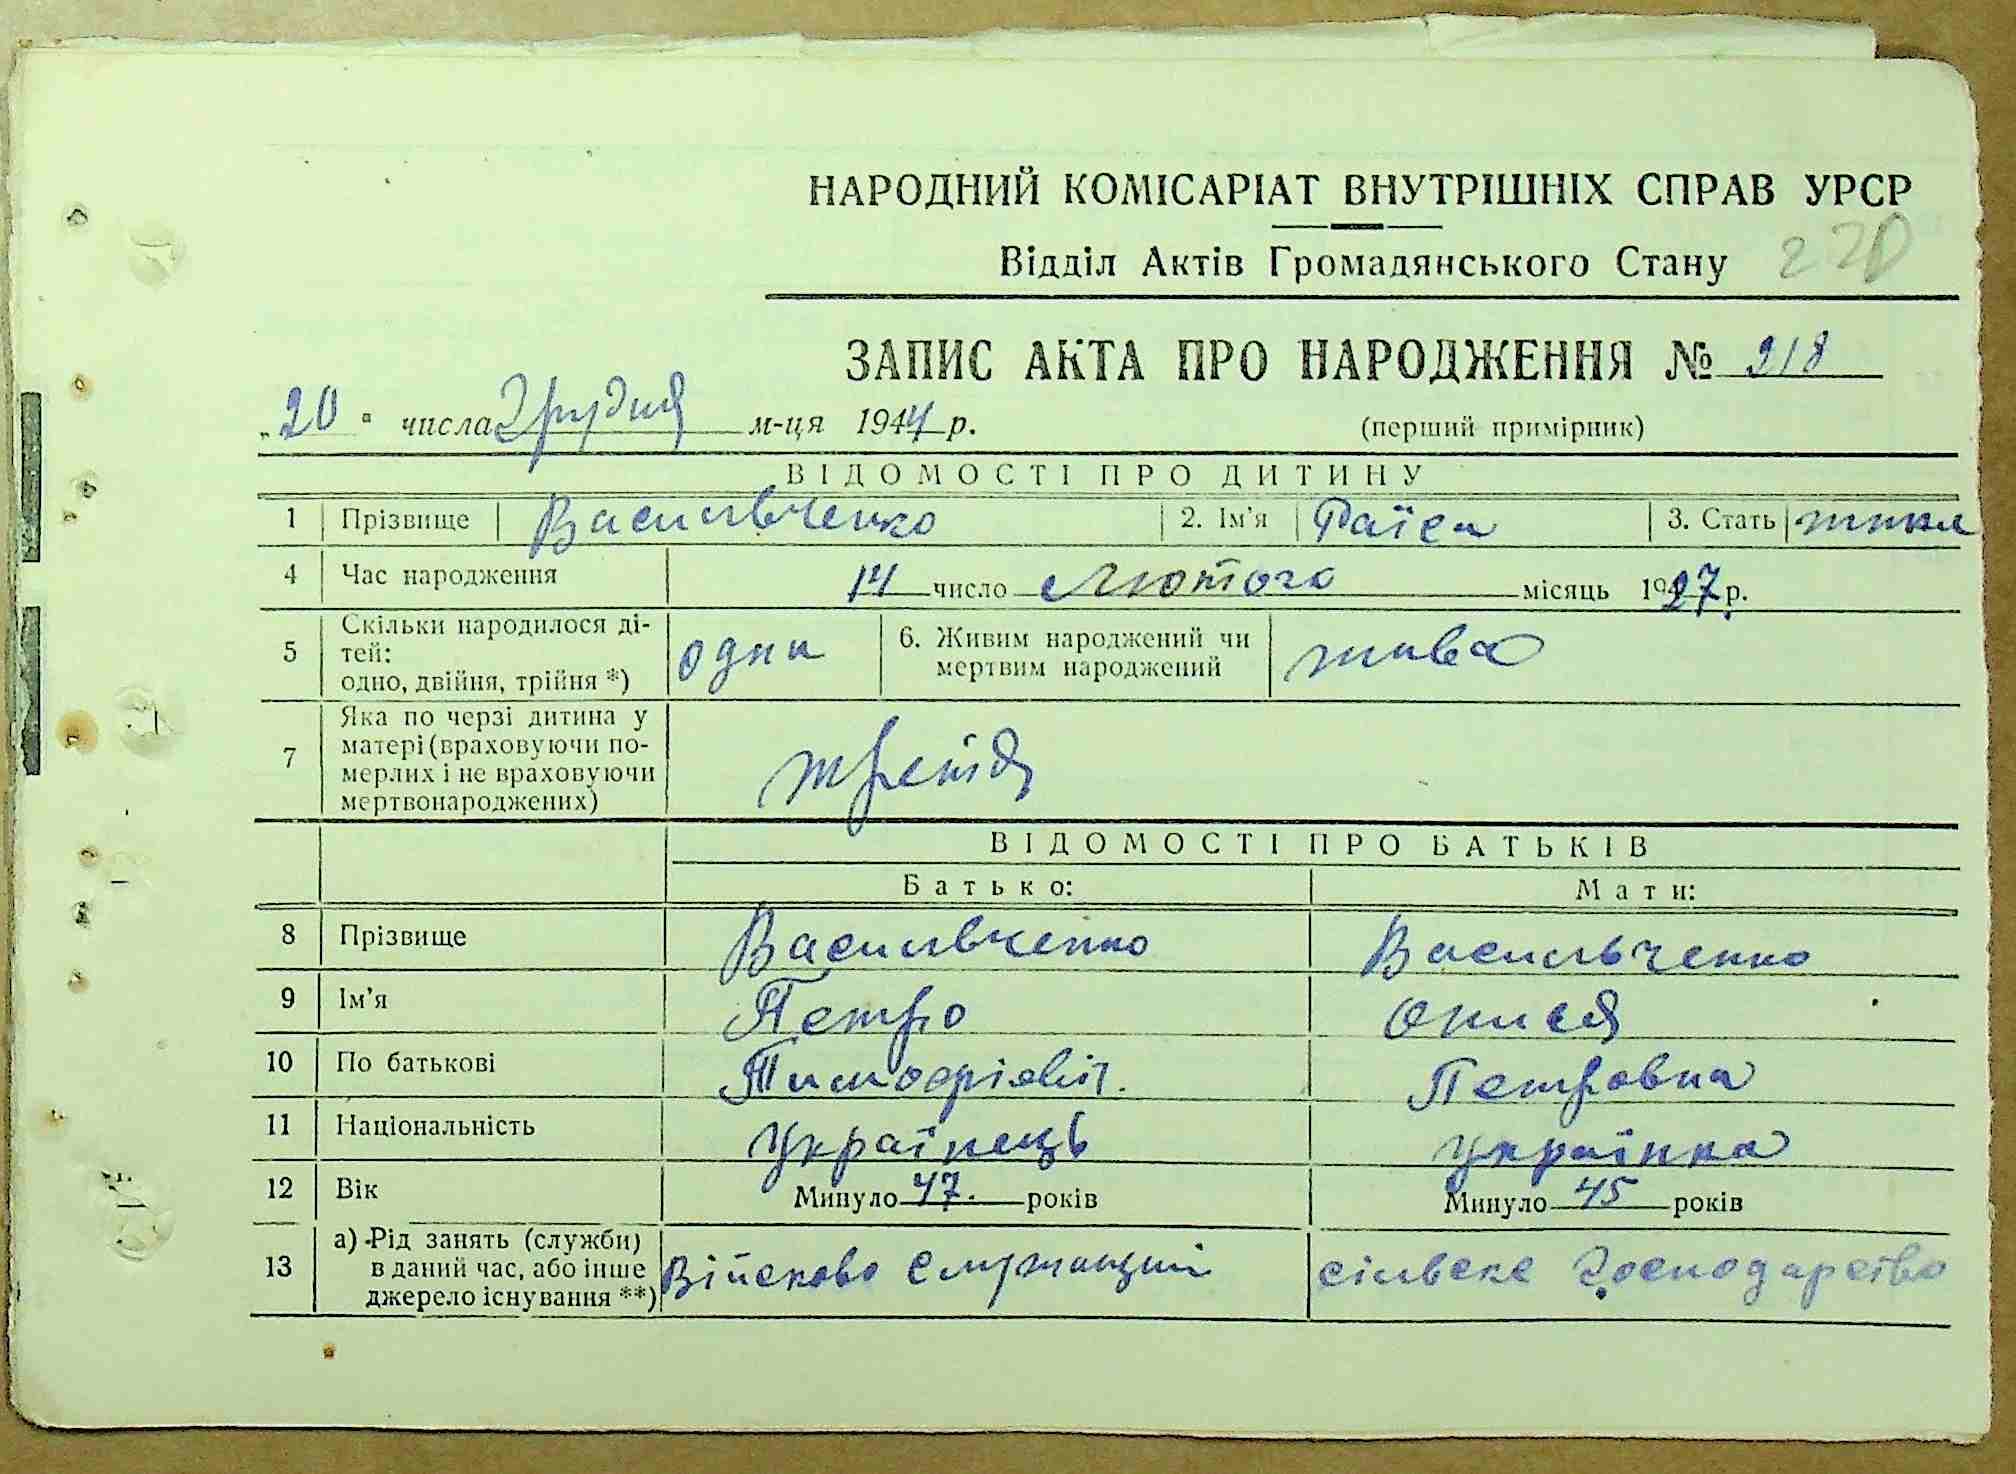 НАРОДНИЙ КОМІСАРІАТ ВНУТРІШНІХ СПРАВ УРСР
Відділ Актів Громадянського Стану 220
ЗАПИС АКТА ПРО НАРОДЖЕННЯ № 218
„20" числа Грудня м-ця 1944 р. (перший примірник)
ВІДОМОСТІ ПРО ДИТИНУ
1 Прізвище Васильченко 2. Ім'я Раїса 3. Стать
4 Час народження 14 число Лютого місяць 1927 р.
5 Скільки народилося ді-
тей:
одно, двійня, трійня *) одна 6. Живим народжений чи
мертвим народжений жива
7 Яка по черзі дитина у
матері (враховуючи по-
мерлих і не враховуючи
мертвонароджених) третія
ВІДОМОСТІ ПРО БАТЬКІВ
Батько: Мати:
8 Прізвище Васильченко Васильченко
9 Ім'я Петро Онися
10 По батькові Тимофієвіч. Петровна
11 Національність Українець Українка
12 Вік Минуло 47. років Минуло 45 років
13 а) Рід занять (служби)
в даний час, або інше
джерело існування **) Військово служащий сільске господарство